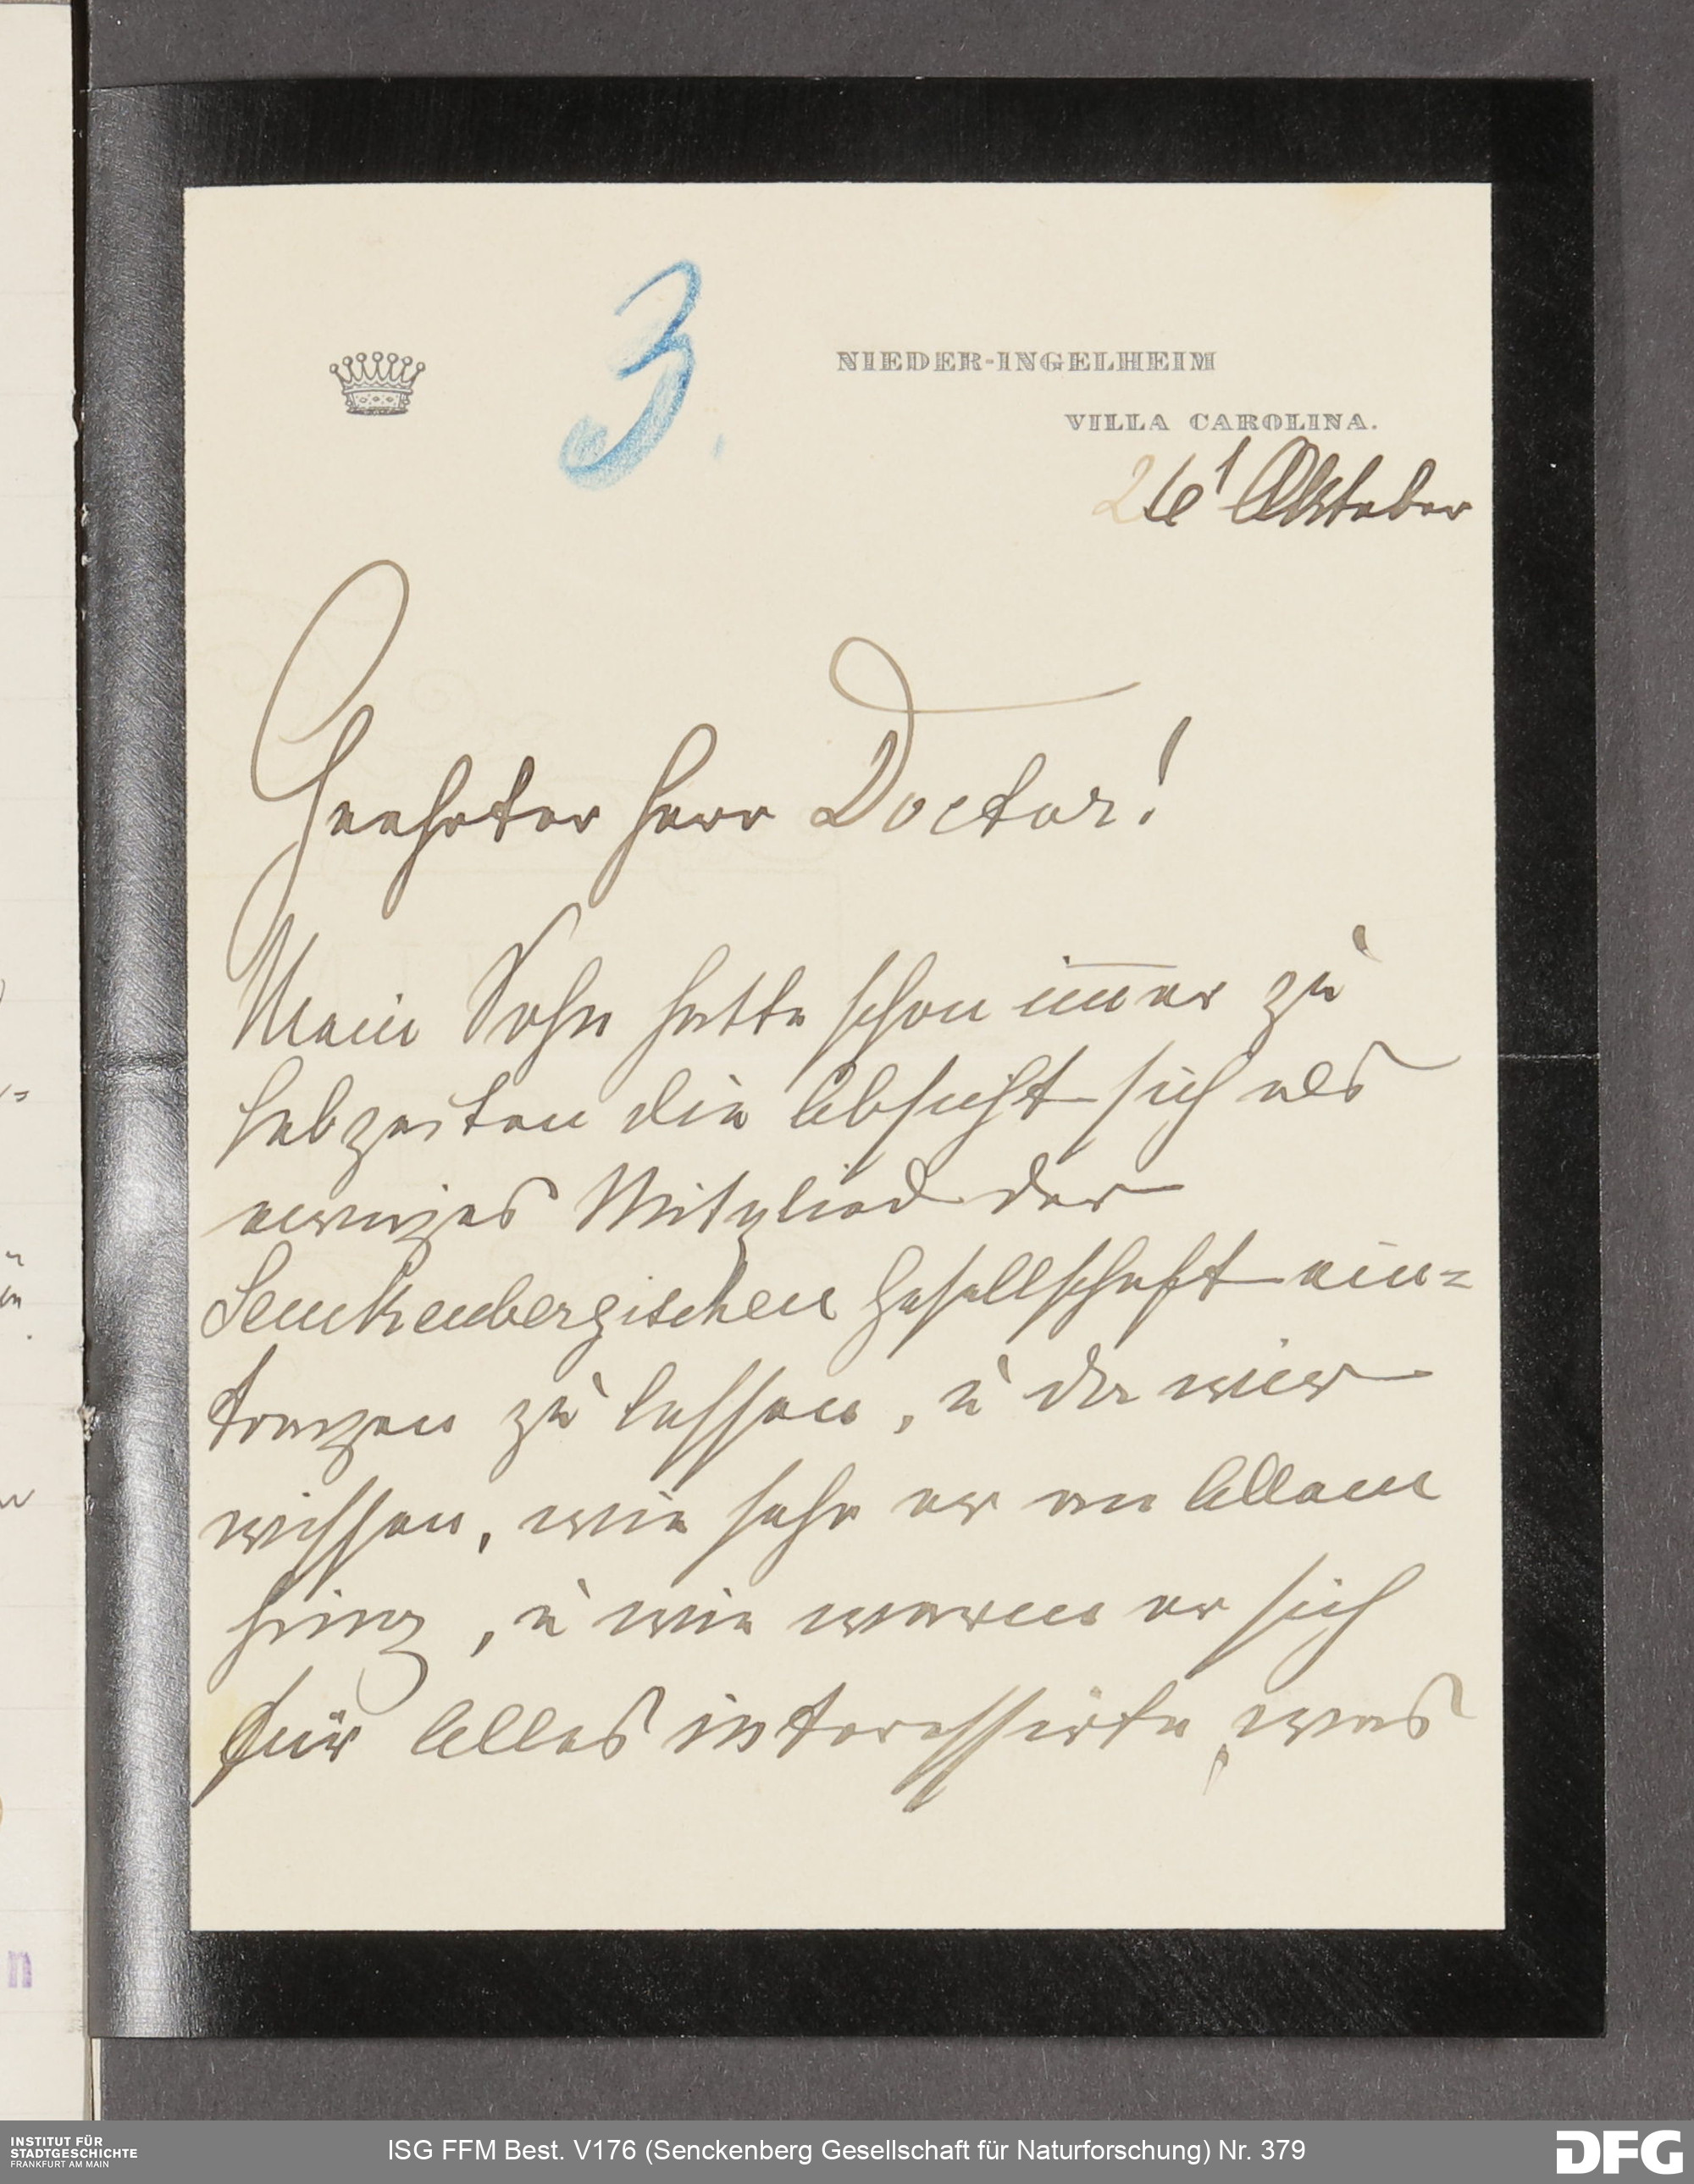 3.
NIEDER-INGELHEIM
VILLA CAROLINA.
26' Oktober
Geehrter Herr Doctor!
Mein Sohn hatte schon immer zu
Lebzeiten die Absicht sich als
ewiges Mitglied der
Senckenbergischen Gesellschaft ein=
tragen zu lassen, u da wir
wissen, wie sehr er an Allem
hing, u wie warm er sich
für Alles interessirte, was
n
INSTITUT FÜR
STADTGESCHICHTE
FRANKFURT AM MAIN
ISG FFM Best. V176 (Senckenberg Gesellschaft für Naturforschung) Nr. 379
DFG